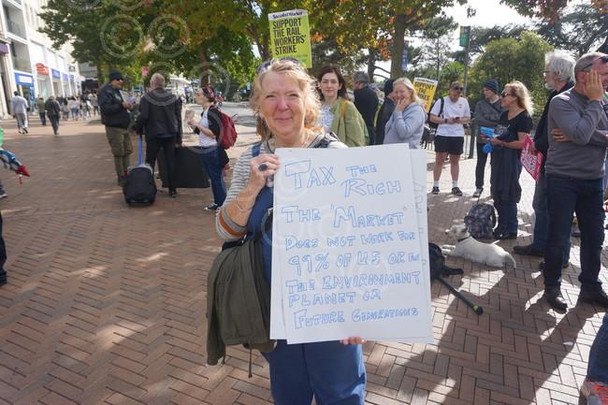 Socialist Worker
SUPPORT
THE RAIL
WORKERS'
STRIKE
TAX THE
RICH
THE 'MARKET'
DOES NOT WORK FOR
99% OF US OR
THE ENVIRONMENT
PLANET OR
FUTURE GENERATIONS